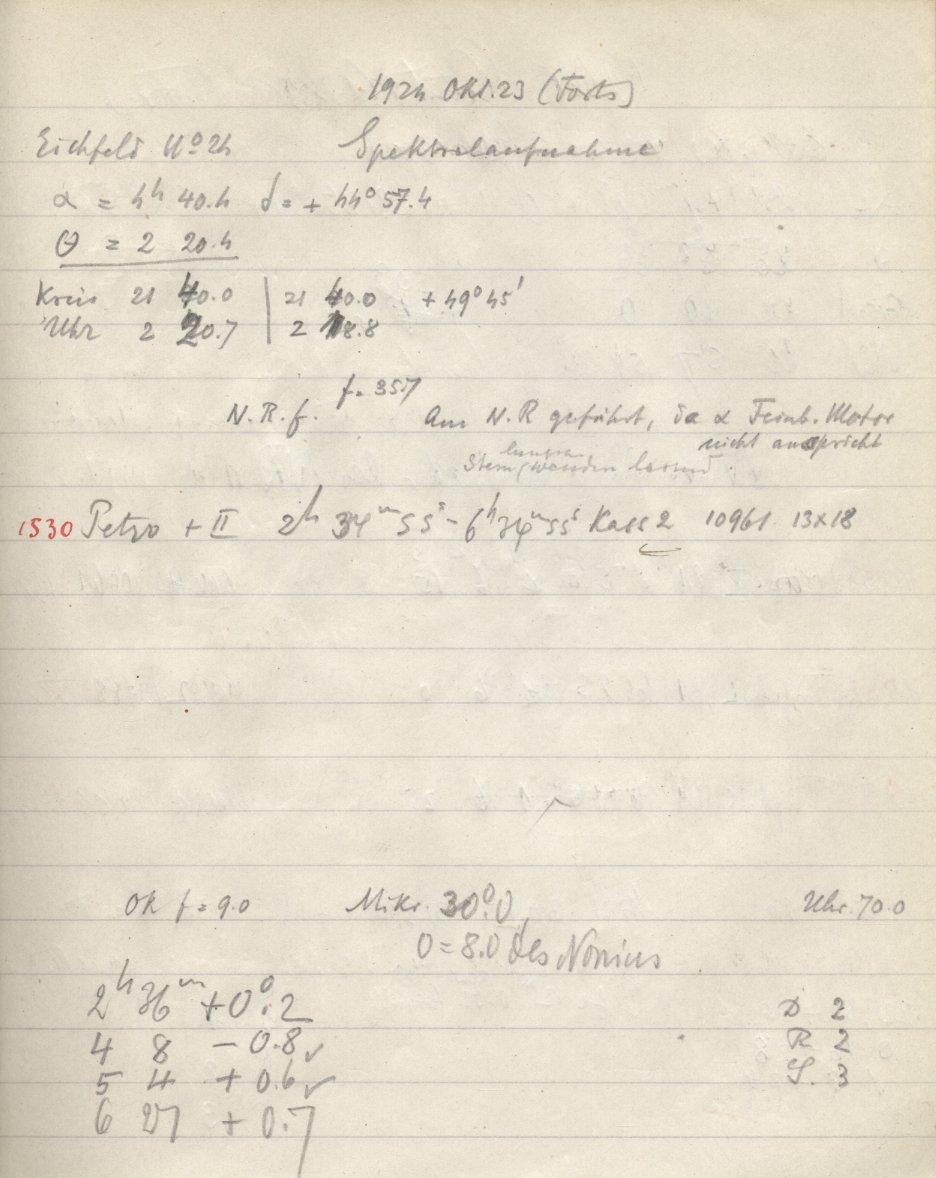 1924 Okt. 23 (Forts)
Eichfeld No 24 Spektralaufnahme
α = 4h 40.4 δ = + 44° 57.4
θ = 2 20.4
Kreis 21 40.0 | 21 40.0 + 49° 45'
Uhr 2 20.7 | 2 18.8
f = 357
N.R.f. Am N.R geführt, da α Feinb. Motor
nicht anspricht
Stern wandern lassend.
1530 Petzo + II 2h 34m 55s - 6h 34m 55s Kass 2 10961 13x18
Ok f = 9.0 Mikr. 30°.0 Uhr 70.0
0 = 8.0 des Nonius
2h 36m + 0°.2 D 2
4 8 - 0.8 ✓ R 2
5 4 + 0.6 ✓ S. 3
6 27 + 0.7